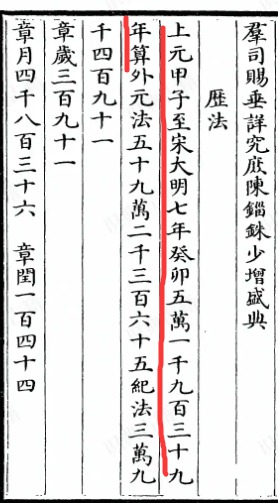 羣司賜垂詳究庶陳錙銖少增盛典
歷法
上元甲子至宋大明七年癸卯五萬一千九百三十九
年算外元法五十九萬二千三百六十五紀法三萬九
千四百九十一
章歲三百九十一
章月四千八百三十六 章閏一百四十四